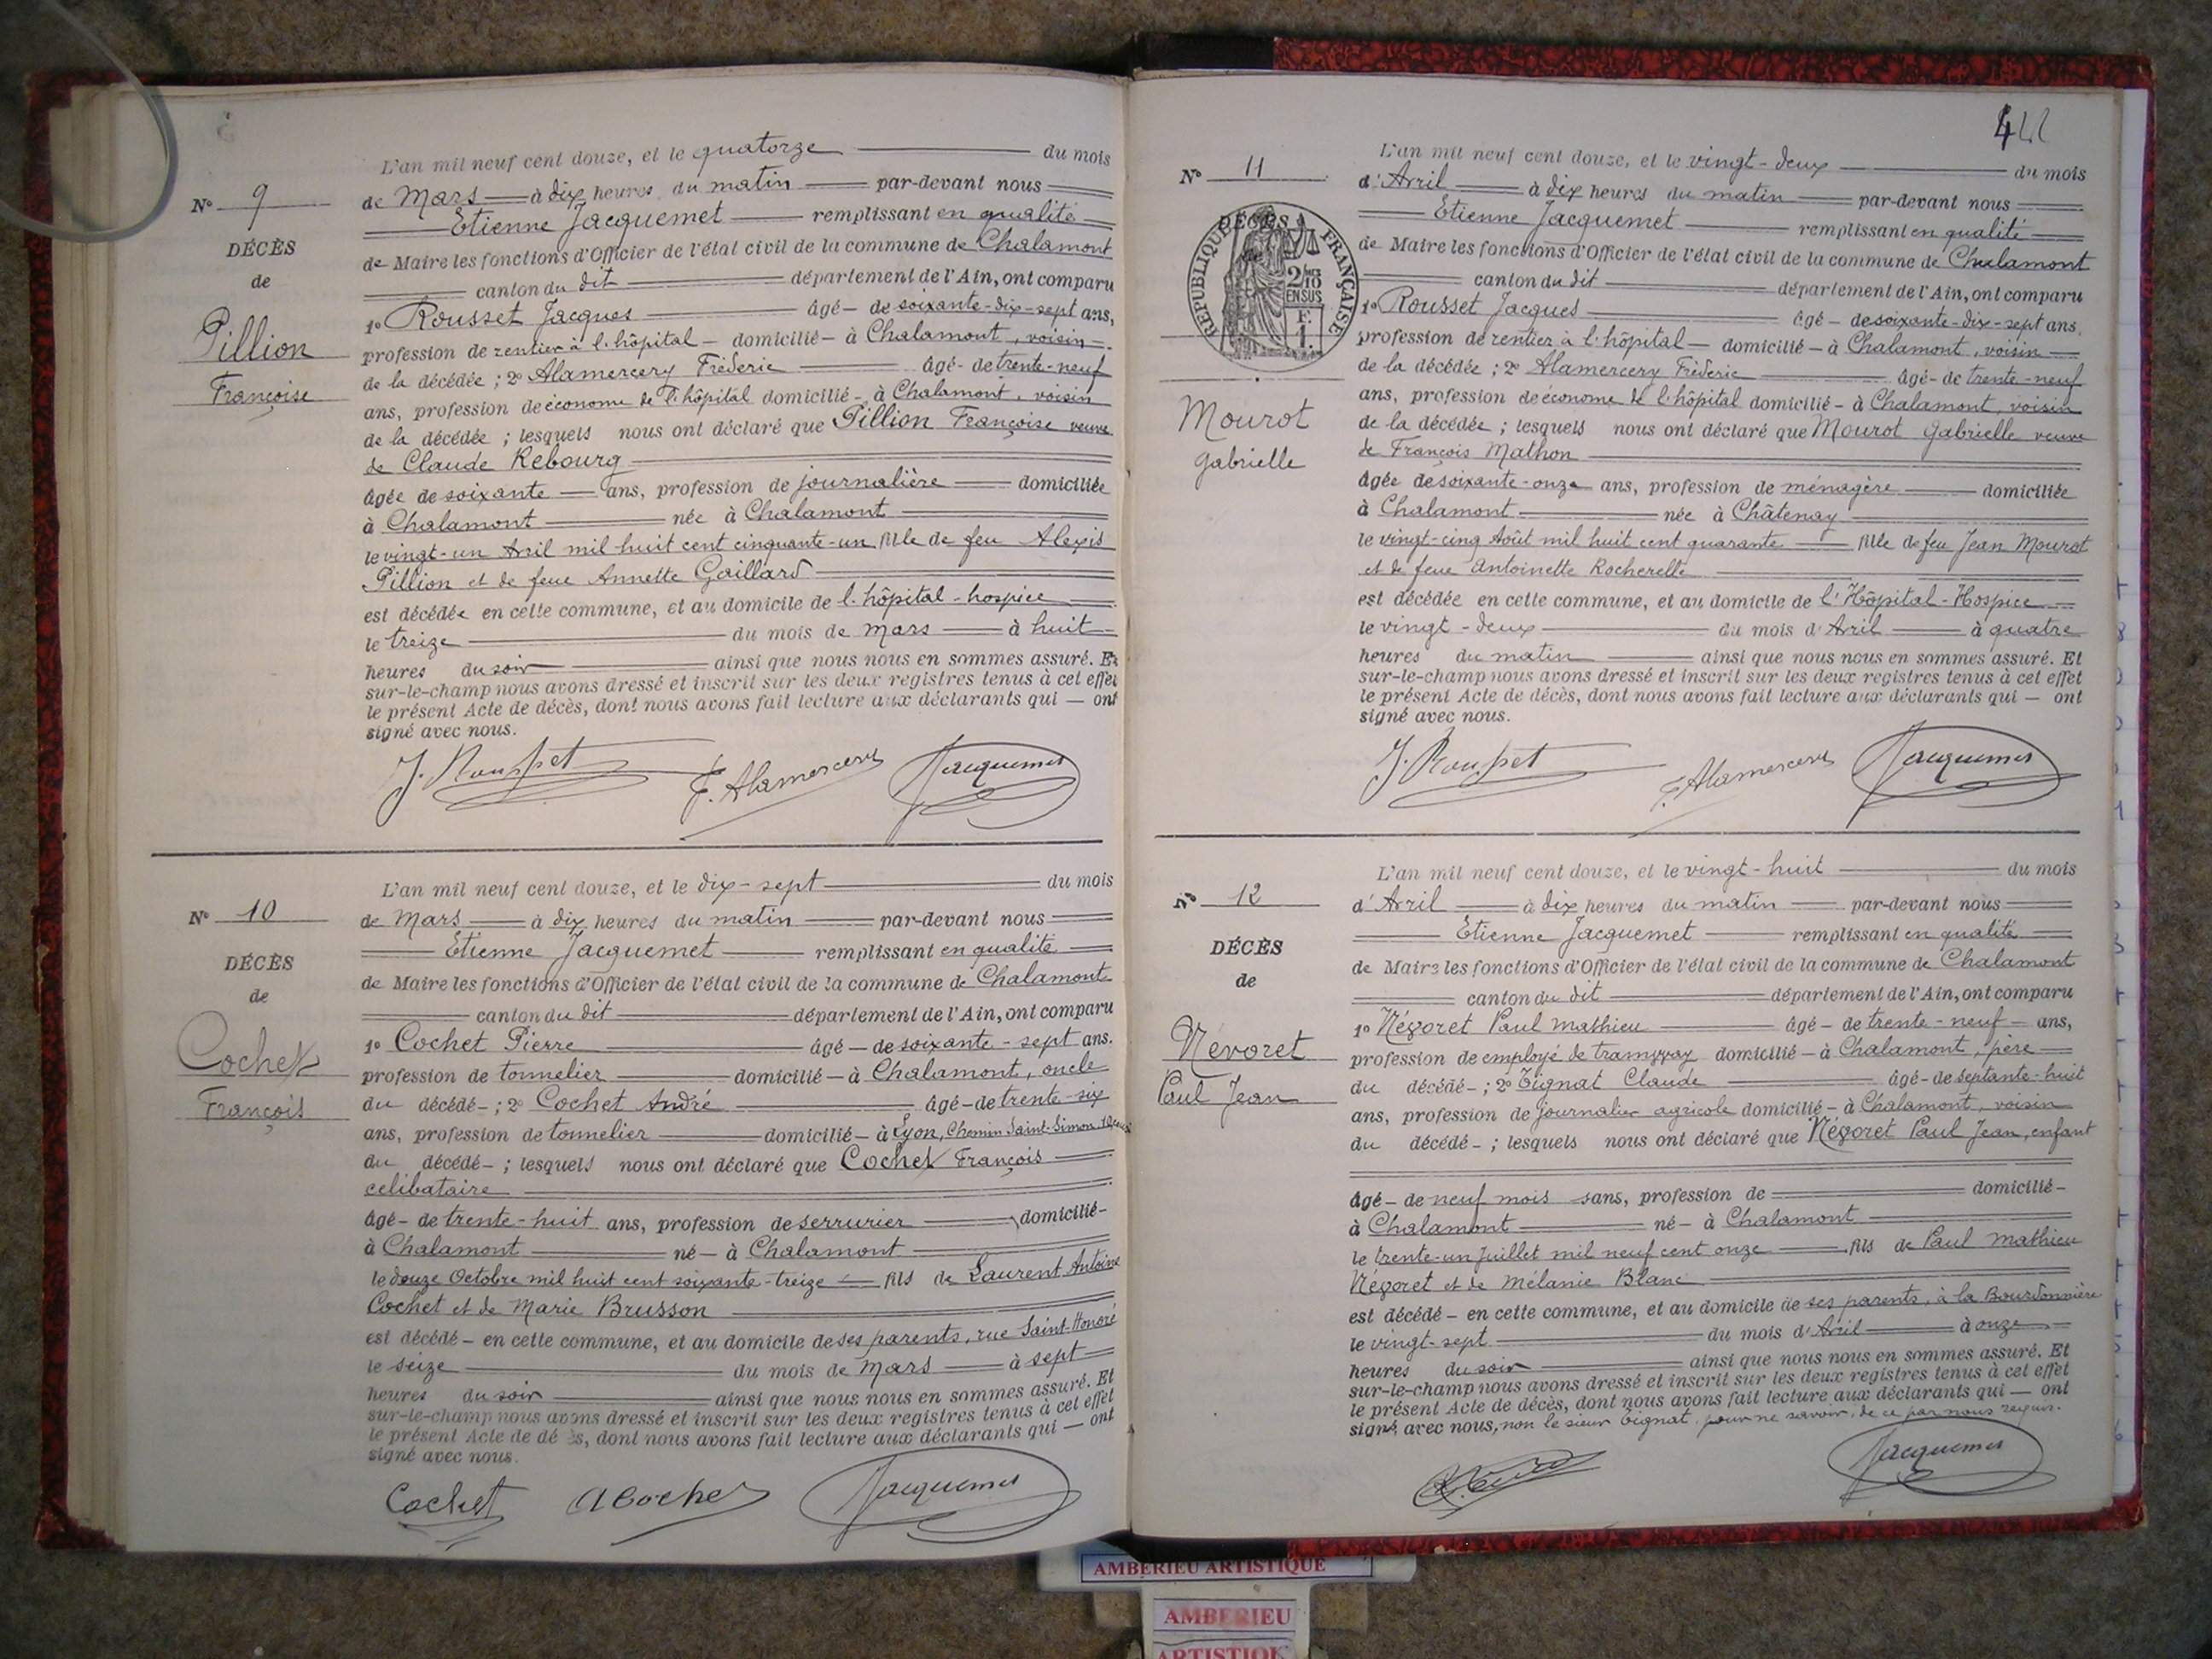 N° 9
DÉCÈS
de
Pillion
Françoise
L'an mil neuf cent douze, et le quatorze du mois
de Mars à dix heures du matin par-devant nous
Etienne Jacquemet remplissant en qualité
de Maire les fonctions d'Officier de l'état civil de la commune de Chalamont
canton du dit département de l'Ain, ont comparu
1° Rousset Jacques âgé - de soixante-dix-sept ans,
profession de rentier à l'hôpital - domicilié - à Chalamont, voisin
de la décédée ; 2° Alamercery Fréderic âgé - de trente-neuf
ans, profession de économe de l'hôpital domicilié - à Chalamont, voisin
de la décédée ; lesquels nous ont déclaré que Pillion Françoise veuve
de Claude Rebourg
âgée de soixante ans, profession de journalière domiciliée
à Chalamont née à Chalamont
le vingt-un Avril mil huit cent cinquante-un fille de feu Alexis
Pillion et de feue Annette Gaillard
est décédée en cette commune, et au domicile de l'hôpital-hospice
le treize du mois de Mars à huit
heures du soir ainsi que nous nous en sommes assuré. Et
sur-le-champ nous avons dressé et inscrit sur les deux registres tenus à cet effet
le présent Acte de décès, dont nous avons fait lecture aux déclarants qui - ont
signé avec nous.
J. Rousset F. Alamercery Jacquemet
N° 10
DÉCÈS
de
Cochet
François
L'an mil neuf cent douze, et le dix-sept du mois
de Mars à dix heures du matin par-devant nous
Etienne Jacquemet remplissant en qualité
de Maire les fonctions d'Officier de l'état civil de la commune de Chalamont
canton du dit département de l'Ain, ont comparu
1° Cochet Pierre âgé - de soixante-sept ans.
profession de tonnelier domicilié - à Chalamont, oncle
du décédé - ; 2° Cochet André âgé - de trente-six
ans, profession de tonnelier domicilié - à Lyon, Chemin Saint-Simon
du décédé - ; lesquels nous ont déclaré que Cochet François
celibataire
âgé - de trente-huit ans, profession de serrurier domicilié -
à Chalamont né - à Chalamont
le douze Octobre mil huit cent soixante-treize fils de Laurent Antoine
Cochet et de Marie Brusson
est décédé - en cette commune, et au domicile de ses parents, rue Saint-Honoré
le seize du mois de Mars à sept
heures du soir ainsi que nous nous en sommes assuré. Et
sur-le-champ nous avons dressé et inscrit sur les deux registres tenus à cet effet
le présent Acte de décès, dont nous avons fait lecture aux déclarants qui - ont
signé avec nous.
Cochet A Cochet Jacquemet
N° 11
DÉCÈS
RÉPUBLIQUE FRANÇAISE
2/10
EN SUS
F.
1.
Mourot
Gabrielle
L'an mil neuf cent douze, et le vingt-deux du mois
d'Avril à dix heures du matin par-devant nous
Etienne Jacquemet remplissant en qualité
de Maire les fonctions d'Officier de l'état civil de la commune de Chalamont
canton du dit département de l'Ain, ont comparu
1° Rousset Jacques âgé - de soixante-dix-sept ans,
profession de rentier à l'hôpital - domicilié - à Chalamont, voisin
de la décédée ; 2° Alamercery Fréderic âgé - de trente-neuf
ans, profession de économe de l'hôpital domicilié - à Chalamont, voisin
de la décédée ; lesquels nous ont déclaré que Mourot Gabrielle veuve
de François Mathon
âgée de soixante-onze ans, profession de ménagère domiciliée
à Chalamont née à Châtenay
le vingt-cinq Août mil huit cent quarante fille de feu Jean Mourot
et de feue Antoinette Rocherelle
est décédée en cette commune, et au domicile de l'Hôpital-Hospice
le vingt-deux du mois d'Avril à quatre
heures du matin ainsi que nous nous en sommes assuré. Et
sur-le-champ nous avons dressé et inscrit sur les deux registres tenus à cet effet
le présent Acte de décès, dont nous avons fait lecture aux déclarants qui - ont
signé avec nous.
J. Rousset F. Alamercery Jacquemet
N° 12
DÉCÈS
de
Névoret
Paul Jean
L'an mil neuf cent douze, et le vingt-huit du mois
d'Avril à dix heures du matin par-devant nous
Etienne Jacquemet remplissant en qualité
de Maire les fonctions d'Officier de l'état civil de la commune de Chalamont
canton du dit département de l'Ain, ont comparu
1° Névoret Paul Mathieu âgé - de trente-neuf - ans,
profession de employé de tramway domicilié - à Chalamont, père
du décédé - ; 2° Tignat Claude âgé - de septante-huit
ans, profession de journalier agricole domicilié - à Chalamont, voisin
du décédé - ; lesquels nous ont déclaré que Névoret Paul Jean, enfant
âgé - de neuf mois sans, profession de domicilié -
à Chalamont né - à Chalamont
le trente-un Juillet mil neuf cent onze fils de Paul Mathieu
Névoret et de Mélanie Blanc
est décédé - en cette commune, et au domicile de ses parents, à la Bourdonnière
le vingt-sept du mois d'Avril à onze
heures du soir ainsi que nous nous en sommes assuré. Et
sur-le-champ nous avons dressé et inscrit sur les deux registres tenus à cet effet
le présent Acte de décès, dont nous avons fait lecture aux déclarants qui - ont
signé avec nous, non le sieur Tignat, pour ne savoir, de ce par nous requis.
Jacquemet
AMBERIEU ARTISTIQUE
AMBERIEU
ARTISTIQUE